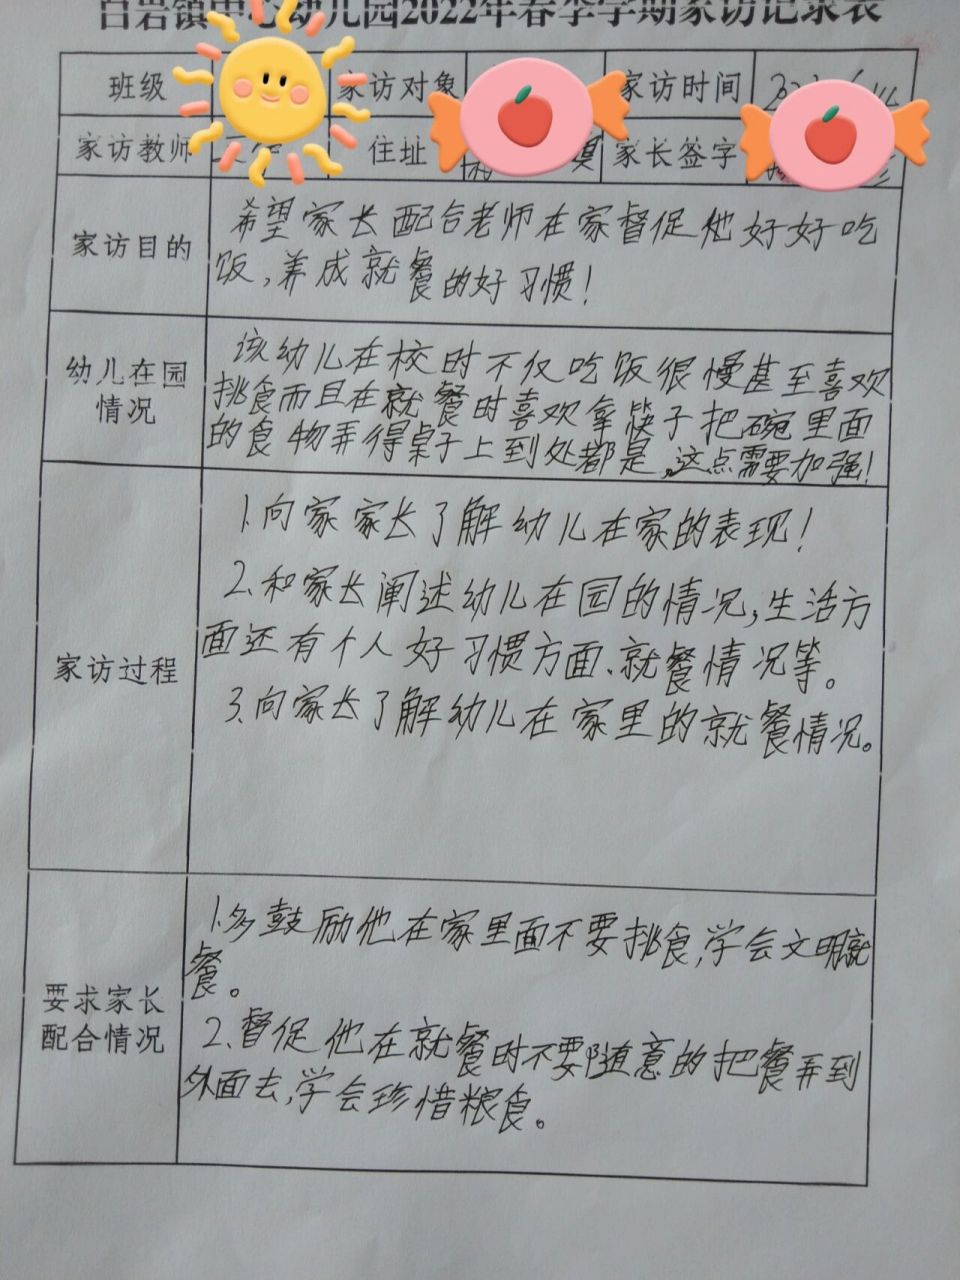 白岩镇中心幼儿园2022年春季学期家访记录表
班级 家访对象 家访时间
家访教师 住址 家长签字
家访目的
希望家长配合老师在家督促他好好吃
饭,养成就餐的好习惯!
幼儿在园
情况
该幼儿在校时不仅吃饭很慢甚至喜欢
挑食而且在就餐时喜欢拿筷子把碗里面
的食物弄得桌子上到处都是,这点需要加强!
家访过程
1.向家家长了解幼儿在家的表现!
2.和家长阐述幼儿在园的情况,生活方
面还有个人好习惯方面、就餐情况等。
3.向家长了解幼儿在家里的就餐情况。
要求家长
配合情况
1.多鼓励他在家里面不要挑食,学会文明就
餐。
2.督促他在就餐时不要随意的把餐弄到
外面去,学会珍惜粮食。